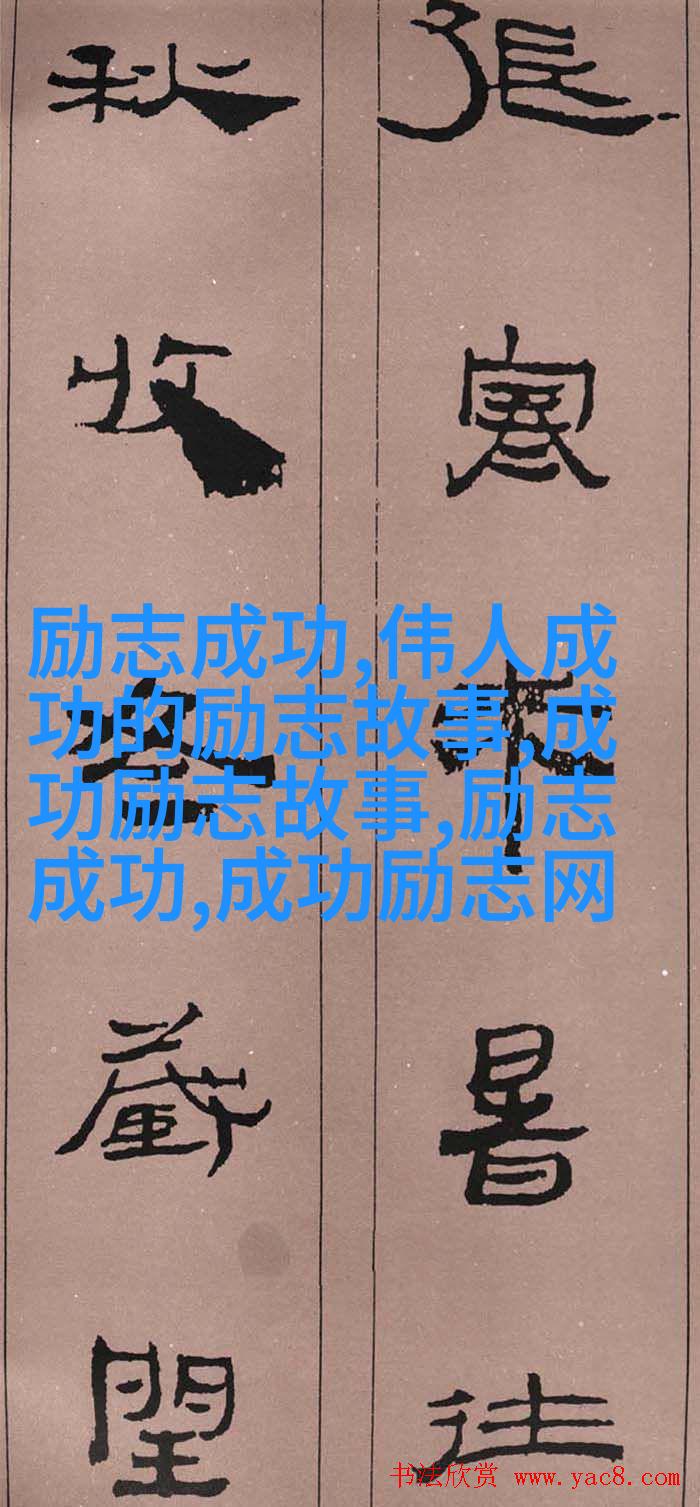 張寒来暑往
秋收冬藏閏
励志成功,伟人成
功的励志故事,成
功励志故事,励志
成功,成功励志网
书法欣赏 www.yac8.com